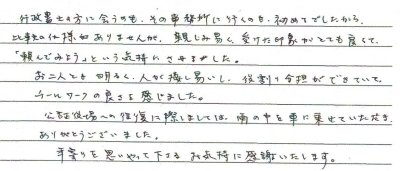 行政書士の方に会うのも、その事務所に行くのも、初めてでしたから、
比較の仕様がありませんが、親しみ易く、受けた印象がとても良くて、
「頼んでみよう」という気持にさせられました。
お二人とも明るく、人が接し易いし、役割り分担ができていて、
チームワークの良さを感じました。
公証役場への往復に際しましては、雨の中を車に乗せていただき
ありがとうございました。
年寄りを思いやって下さる お気持に感謝いたします。